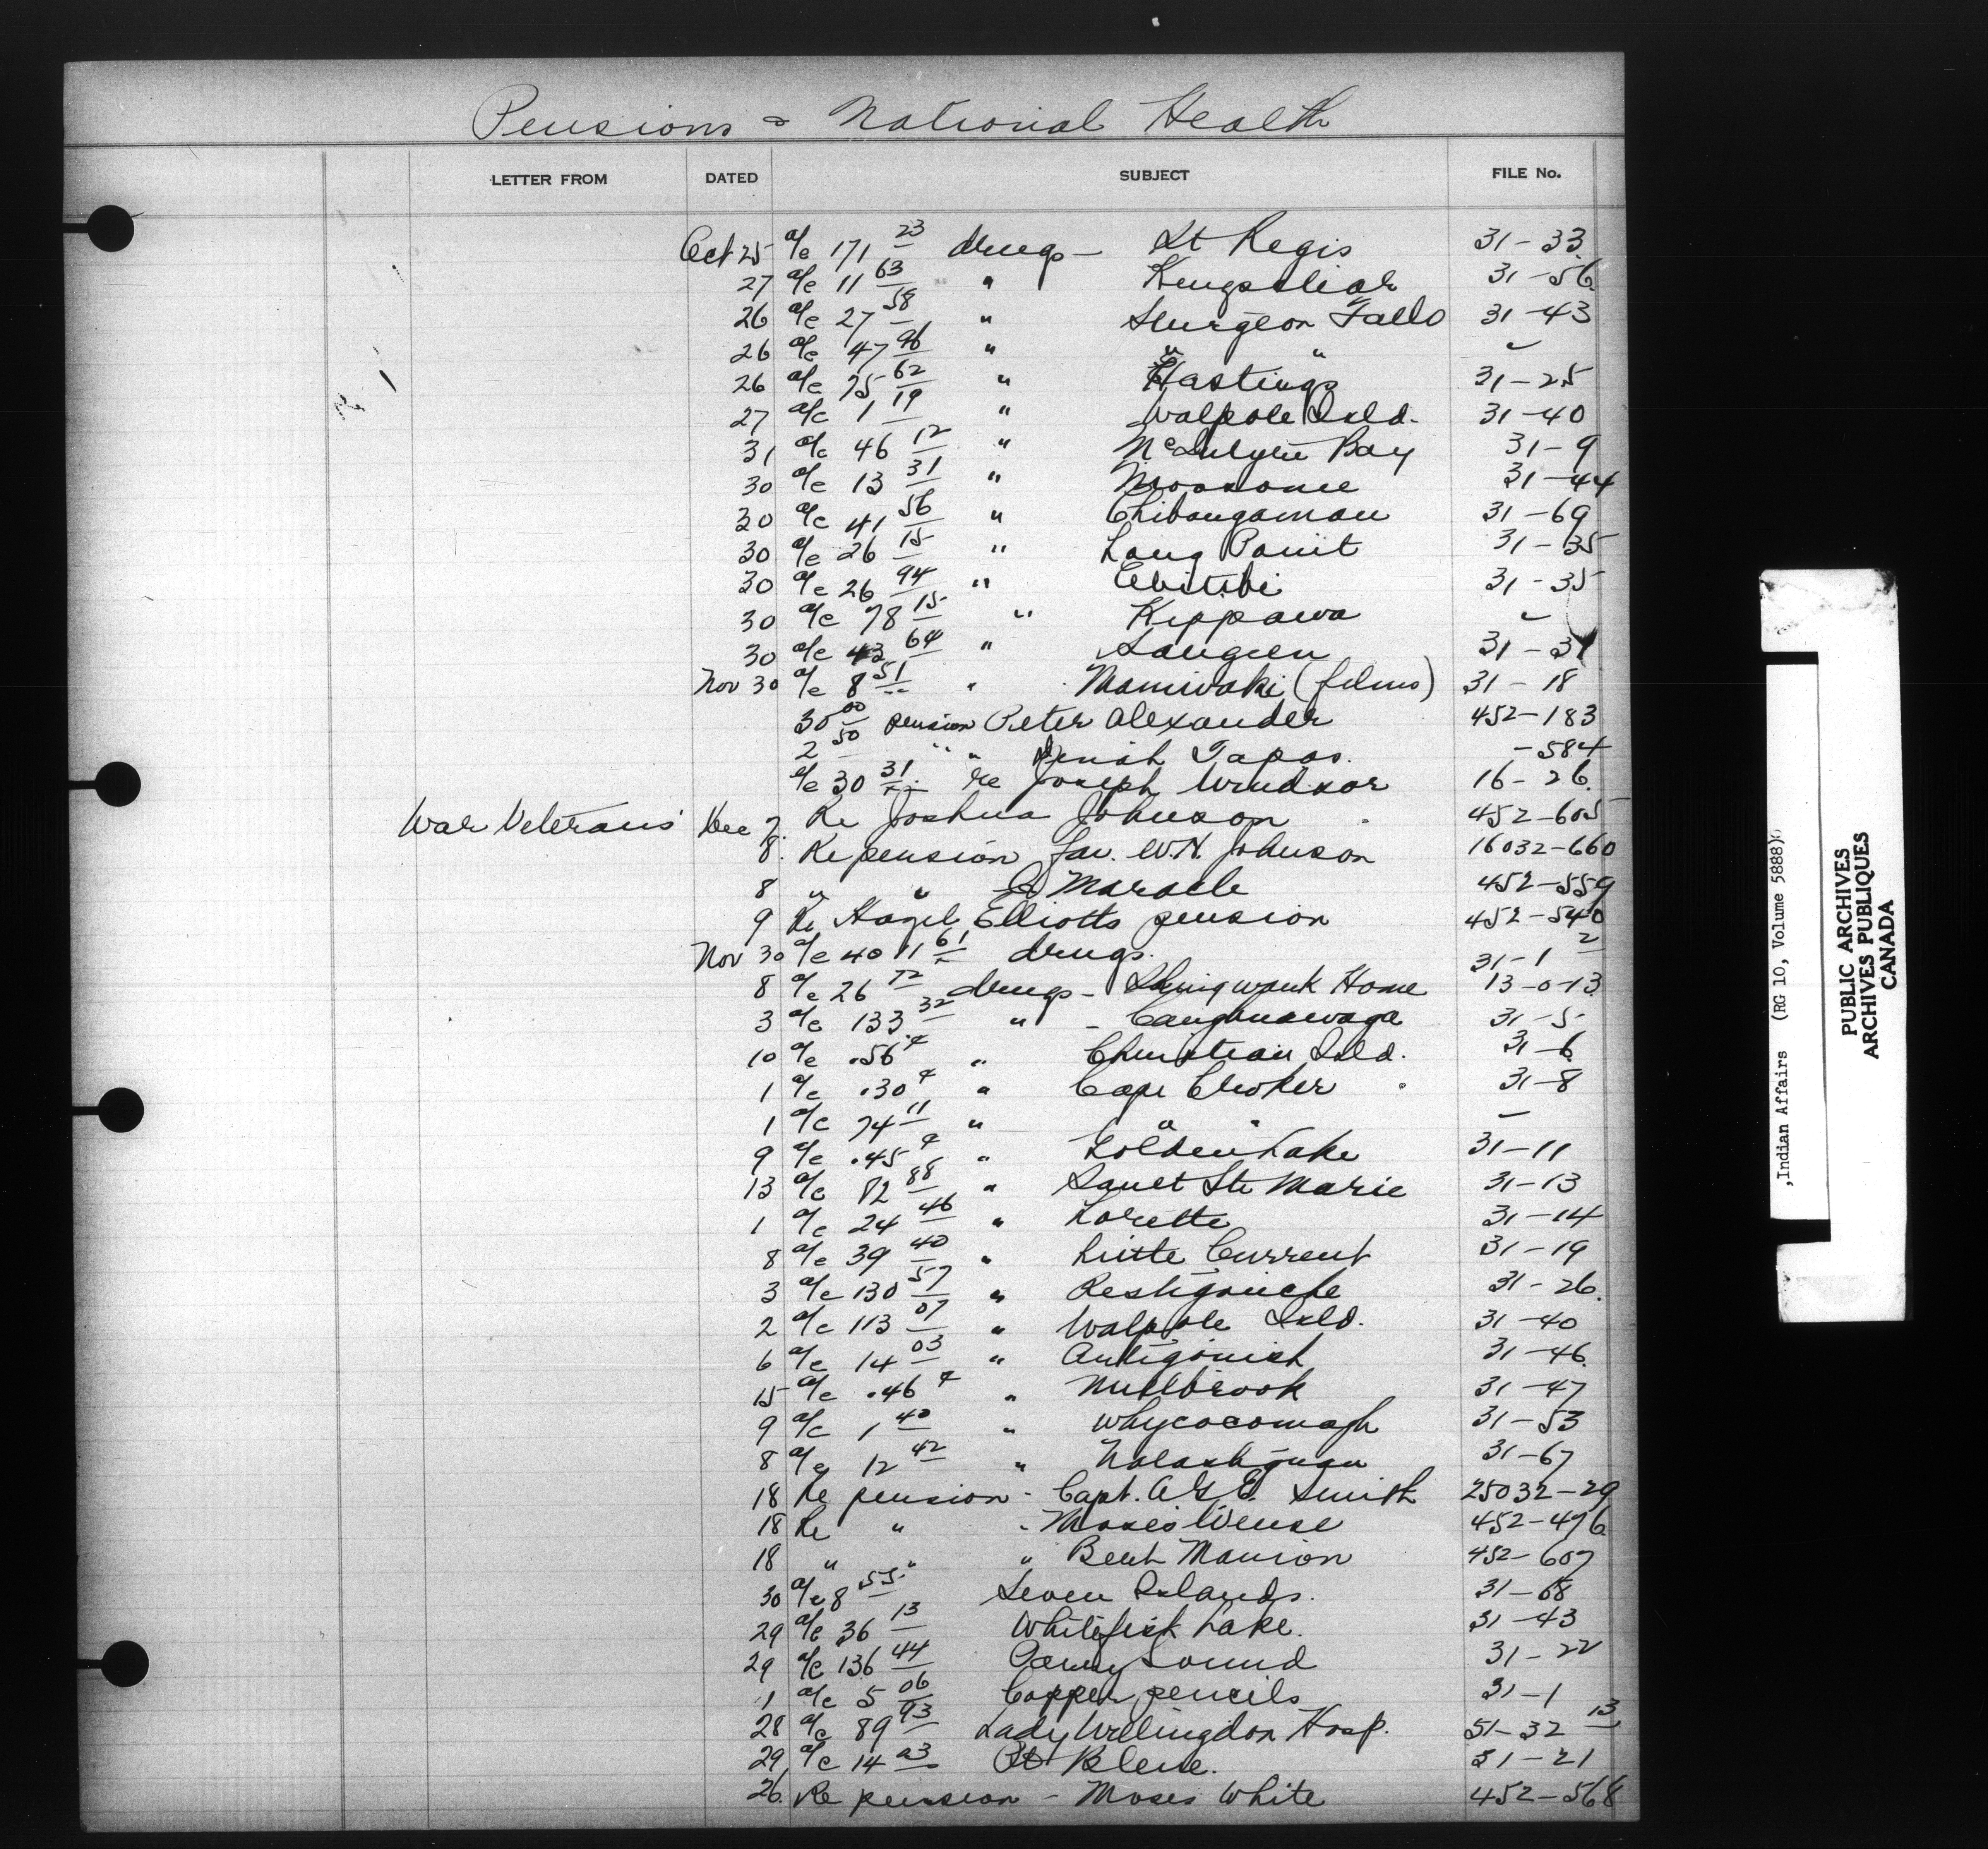 Pensions & National Health
LETTER FROM DATED SUBJECT FILE No.
Oct 25 a/c 171 23 drugs - St Regis 31-33
27 a/c 11 63 " Kingsclear 31-56
26 a/c 27 58 " Sturgeon Falls 31-43
26 a/c 47 96 " " "
26 a/c 75 62 " Hastings 31-25
27 a/c 1 19 " Walpole Isld. 31-40
31 a/c 46 12 " McIntyre Bay 31-9
30 a/c 13 31 " Moosonee 31-44
30 a/c 41 56 " Chibougamau 31-69
30 a/c 26 15 " Long Point 31-35
30 a/c 26 94 " Abitibi 31-35
30 a/c 78 15 " Kippawa
30 a/c 43 64 " Saugeen 31-31
Nov 30 a/c 8 51 " Maniwaki (films) 31-18
30 00 pension Peter Alexander 452-183
2 50 " " Tapas. -584
a/c 30 31 re Joseph Windsor 16-26
War Veterans' Dec 7. Re Joshua Johnson 452-605
8. Re pension fav. W.H. Johnson 16032-660
8 " " Maracle 452-559
9 Re Hazel Elliotts pension 452-540
Nov 30 a/c 40 11 61 drugs. 31-1 2
8 a/c 26 72 drugs - Shingwauk Home 13-0-13
3 a/c 133 32 " - Caughnawaga 31-5
10 a/c .56¢ " Christian Isld. 31-6
1 a/c .30¢ " Cape Croker 31-8
1 a/c 74 11 " " " -
9 a/c .45¢ " Golden Lake 31-11
13 a/c 82 88 " Sault Ste Marie 31-13
1 a/c 24 46 " Lorette 31-14
8 a/c 39 40 " Little Current 31-19
3 a/c 130 57 " Restigouche 31-26.
2 a/c 113 07 " Walpole Isld. 31-40
6 a/c 14 03 " Antigonish 31-46.
15 a/c .46¢ " Millbrook 31-47
9 a/c 1 40 " Whycocomagh 31-53
8 a/c 12 42 " Natashquan 31-67
18 Re pension - Capt. A.G.E. Smith 25032-29
18 Re " - Moses 452-476
18 " " " Manion 452-607
30 a/c 8 55 Seven Islands. 31-68
29 a/c 36 13 Whitefish Lake. 31-43
29 a/c 136 44 Parry Sound 31-22
1 a/c 5 06 Copper pencils 31-1
28 a/c 89 93 Lady Willingdon Hosp. 51-32 13
29 a/c 14 Pt Bleue. 31-21
26. Re pension - Moses White 452-568
,Indian Affairs (RG 10, Volume 5888)
PUBLIC ARCHIVES
ARCHIVES PUBLIQUES
CANADA